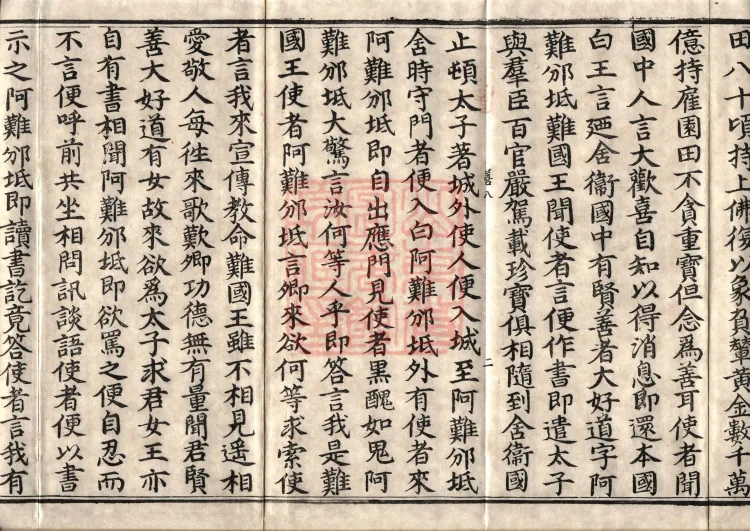 田八十頃持上佛復以象負輦黃金數千萬
億持雇園田不貪重寶但念爲善耳使者聞
國中人言大歡喜自知以得消息即還本國
白王言迺舍衞國中有賢善者大好道字阿
難邠坻難國王聞使者言便作書即遣太子
與羣臣百官嚴駕載珍寶俱相隨到舍衞國
止頓太子著城外使人便入城至阿難邠坻
舍時守門者便入白阿難邠坻外有使者來
阿難邠坻即自出應門見使者黒醜如鬼阿
難邠坻大驚言汝何等人乎即答言我是難
國王使者阿難邠坻言卿來欲何等求索使
者言我來宣傳教命難國王雖不相見遥相
愛敬人每徃來歌歎卿功德無有量聞君賢
善大好道有女故來欲爲太子求君女王亦
自有書相聞阿難邠坻即欲罵之便自忍而
不言便呼前共坐相問訊談語使者便以書
示之阿難邠坻即讀書訖竟答使者言我有
二